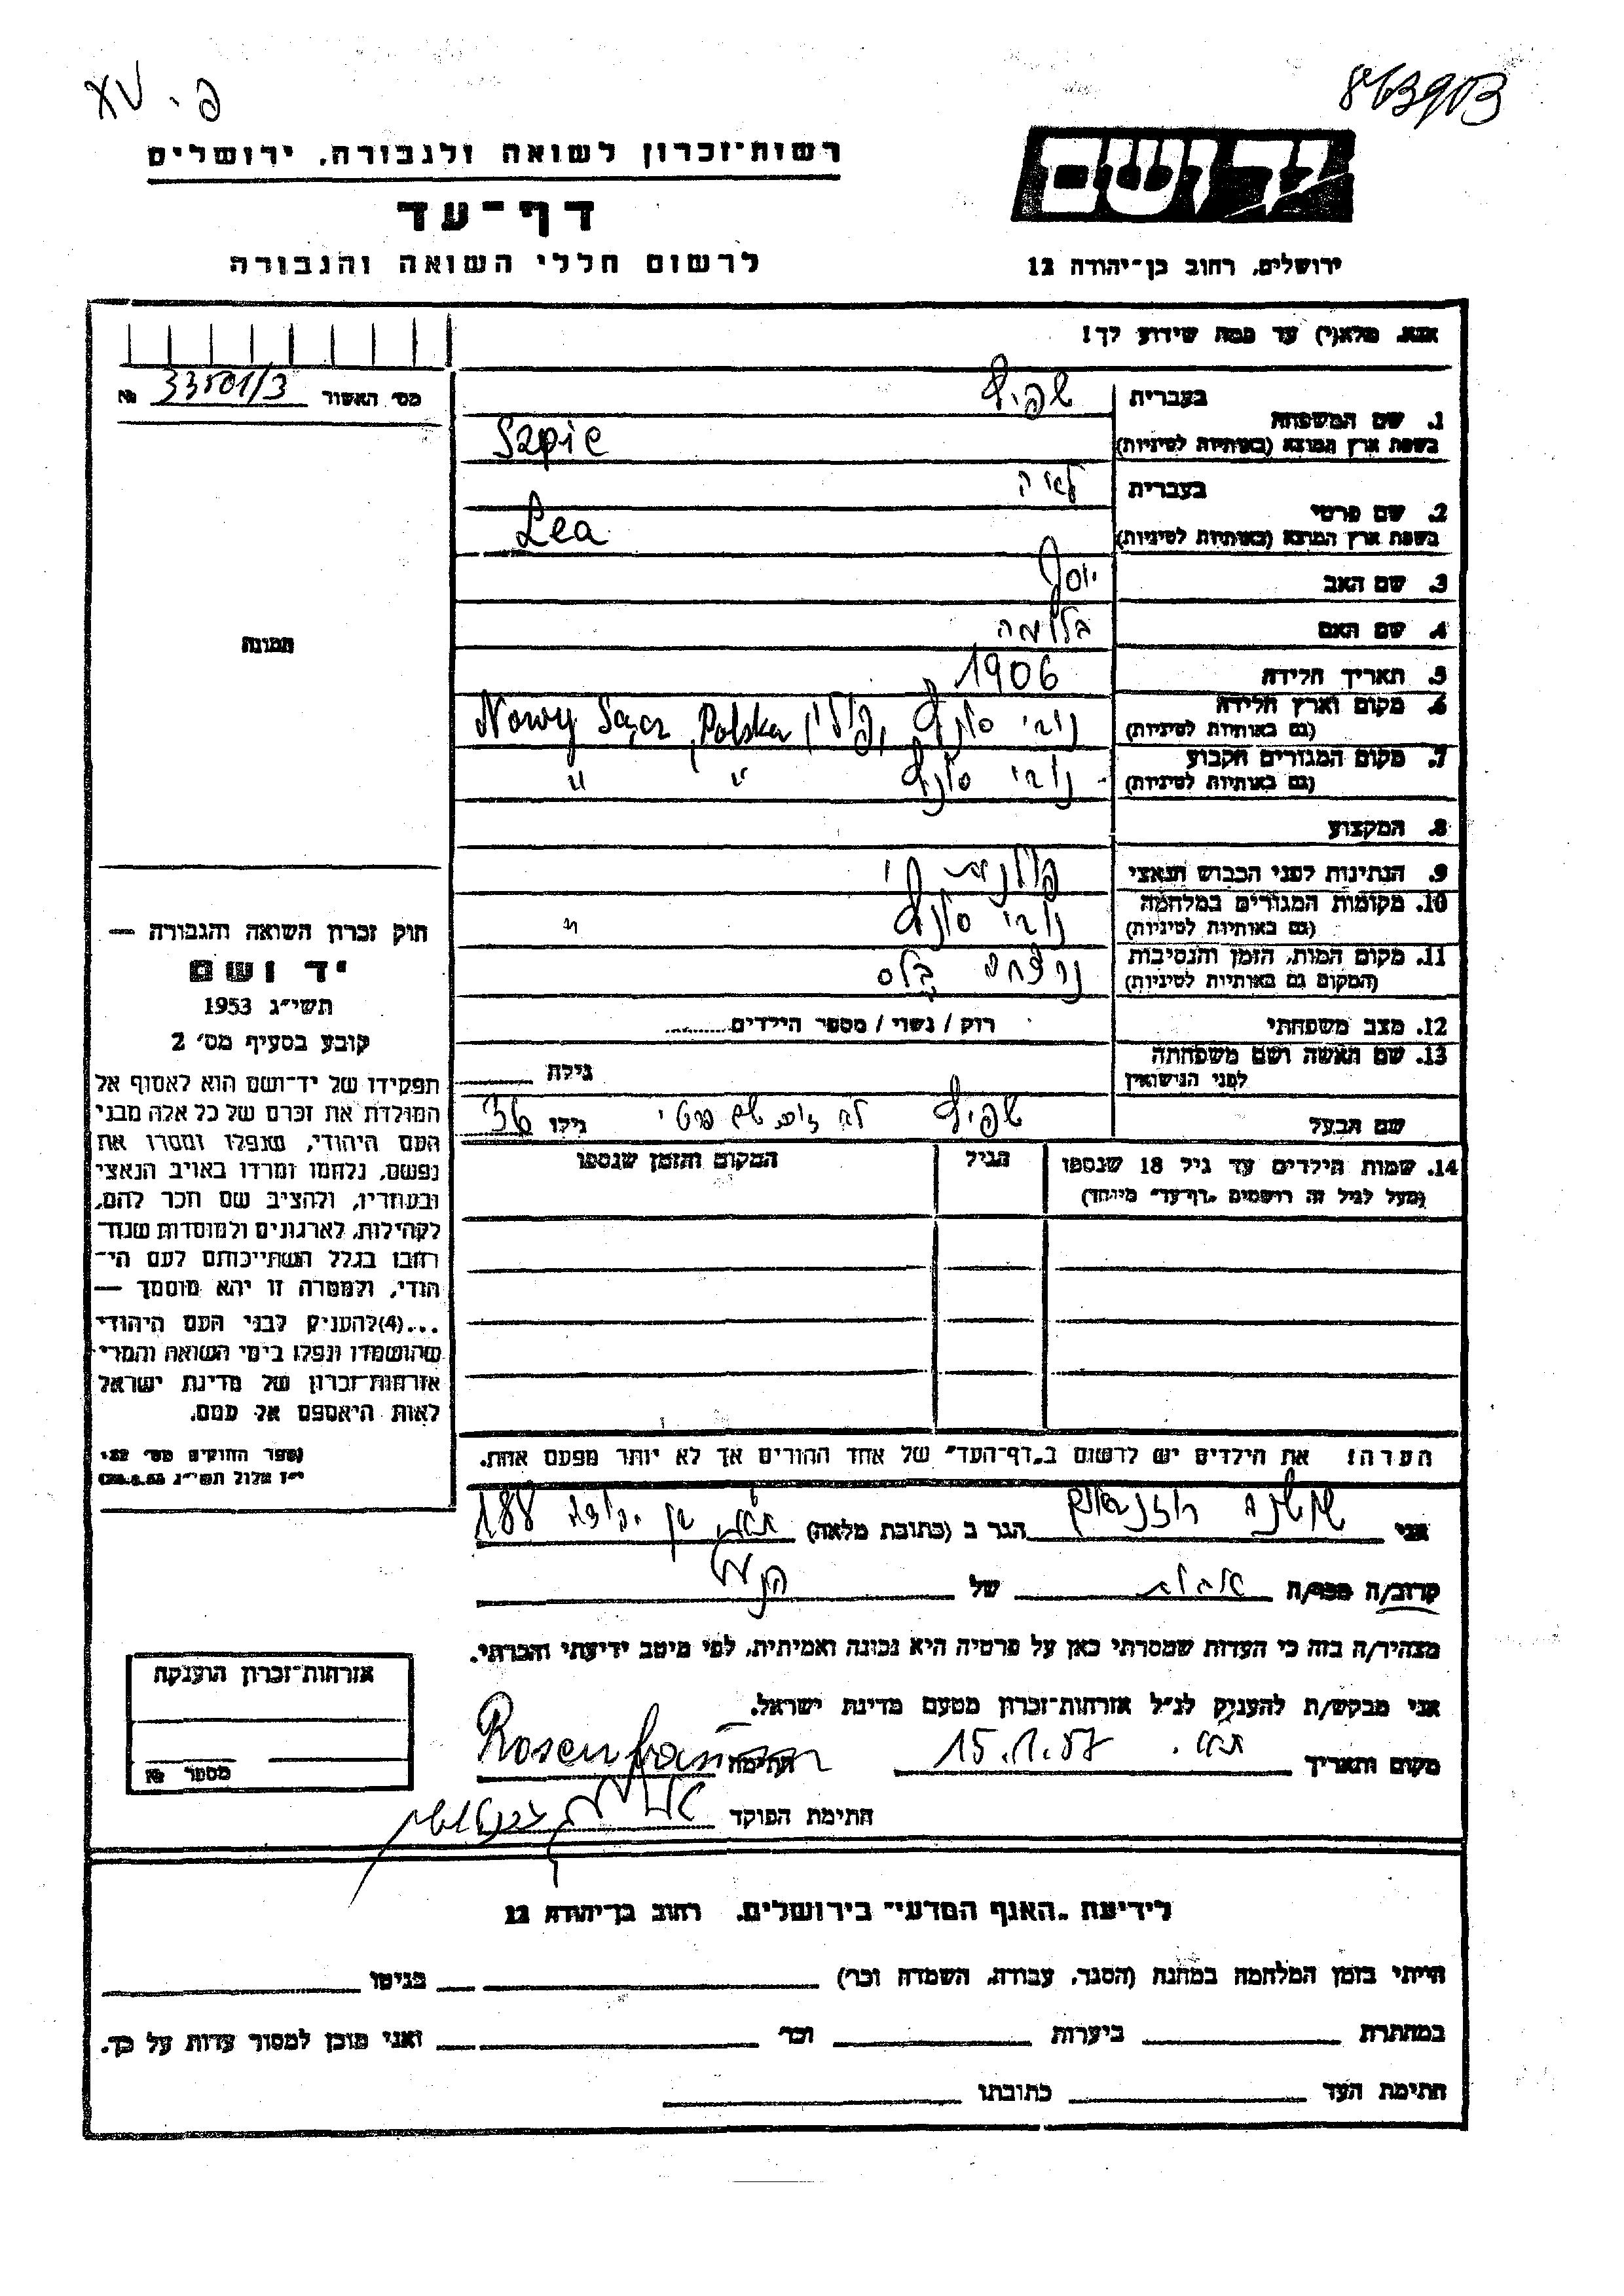 863903
פ. XV
יד ושם
רשות־זכרון לשואה ולגבורה, ירושלים
דף־עד
לרשום חללי השואה והגבורה
ירושלים, רחוב בן־יהודה 12
אנא, מלא(י) עד כמה שידוע לך!
מס׳ האשור 33501/3 №
1. שם המשפחה בעברית שפיץ
בשפת ארץ המוצא (באותיות לטיניות) Szpic
2. שם פרטי בעברית לאה
בשפת ארץ המוצא (באותיות לטיניות) Lea
3. שם האב יוסף
4. שם האם בלומה
5. תאריך הלידה 1906
6. מקום וארץ הלידה נובי סונץ, פולין Nowy Sącz, Polska
(גם באותיות לטיניות)
7. מקום המגורים הקבוע נובי סונץ " "
(גם באותיות לטיניות)
8. המקצוע
9. הנתינות לפני הכבוש הנאצי
10. מקומות המגורים במלחמה נובי סונץ "
(גם באותיות לטיניות)
11. מקום המות, הזמן והנסיבות נרצחה
(המקום גם באותיות לטיניות)
12. מצב משפחתי רוק / נשוי / מספר הילדים
13. שם האשה ושם משפחתה
לפני הנישואין גילה
שם הבעל שפיץ לא שם פרטי גילו 36
14. שמות הילדים עד גיל 18 שנספו הגיל המקום והזמן שנספו
(מעל לגיל זה רושמים "דף־עד" מיוחד)
הערה! את הילדים יש לרשום ב"דף־העד" של אחד ההורים אך לא יותר מפעם אחת.
תמונה
חוק זכרון השואה והגבורה —
יד ושם
תשי״ג 1953
קובע בסעיף מס׳ 2
תפקידו של יד־ושם הוא לאסוף אל
המולדת את זכרם של כל אלה מבני
העם היהודי, שנפלו ומסרו את
נפשם, נלחמו ומרדו באויב הנאצי
ובעוזריו, ולהציב שם וזכר להם,
לקהילות, לארגונים ולמוסדות שנח־
רבו בגלל השתייכותם לעם הי־
הודי, ולמטרה זו יהא מוסמך —
...(4)להעניק לבני העם היהודי
שהושמדו ונפלו בימי השואה והמרי
אזרחות־זכרון של מדינת ישראל
לאות היאספם אל עמם.
(ספר החוקים מס׳ 132,
י״ז אלול תשי״ג 28.8.53)
אני שושנה רוזנבאום הגר ב (כתובת מלאה) ת"א, בן יהודה 188
קרוב/ה מכר/ה של
מצהיר/ה בזה כי העדות שמסרתי כאן על פרטיה היא נכונה ואמיתית, לפי מיטב ידיעתי והכרתי.
אני מבקש/ת להעניק לנ״ל אזרחות־זכרון מטעם מדינת ישראל.
מקום ותאריך ת"א. 15.1.57 חתימה Rosenbaum
חתימת הפוקד
אזרחות־זכרון הוענקה
מספר №
לידיעת "האגף המדעי" בירושלים, רחוב בן־יהודה 12
הייתי בזמן המלחמה במחנה (הסגר, עבודה, השמדה וכו׳) בגיטו
במחתרת ביערות וכו׳ ואני מוכן למסור עדות על כך.
חתימת העד כתובתו